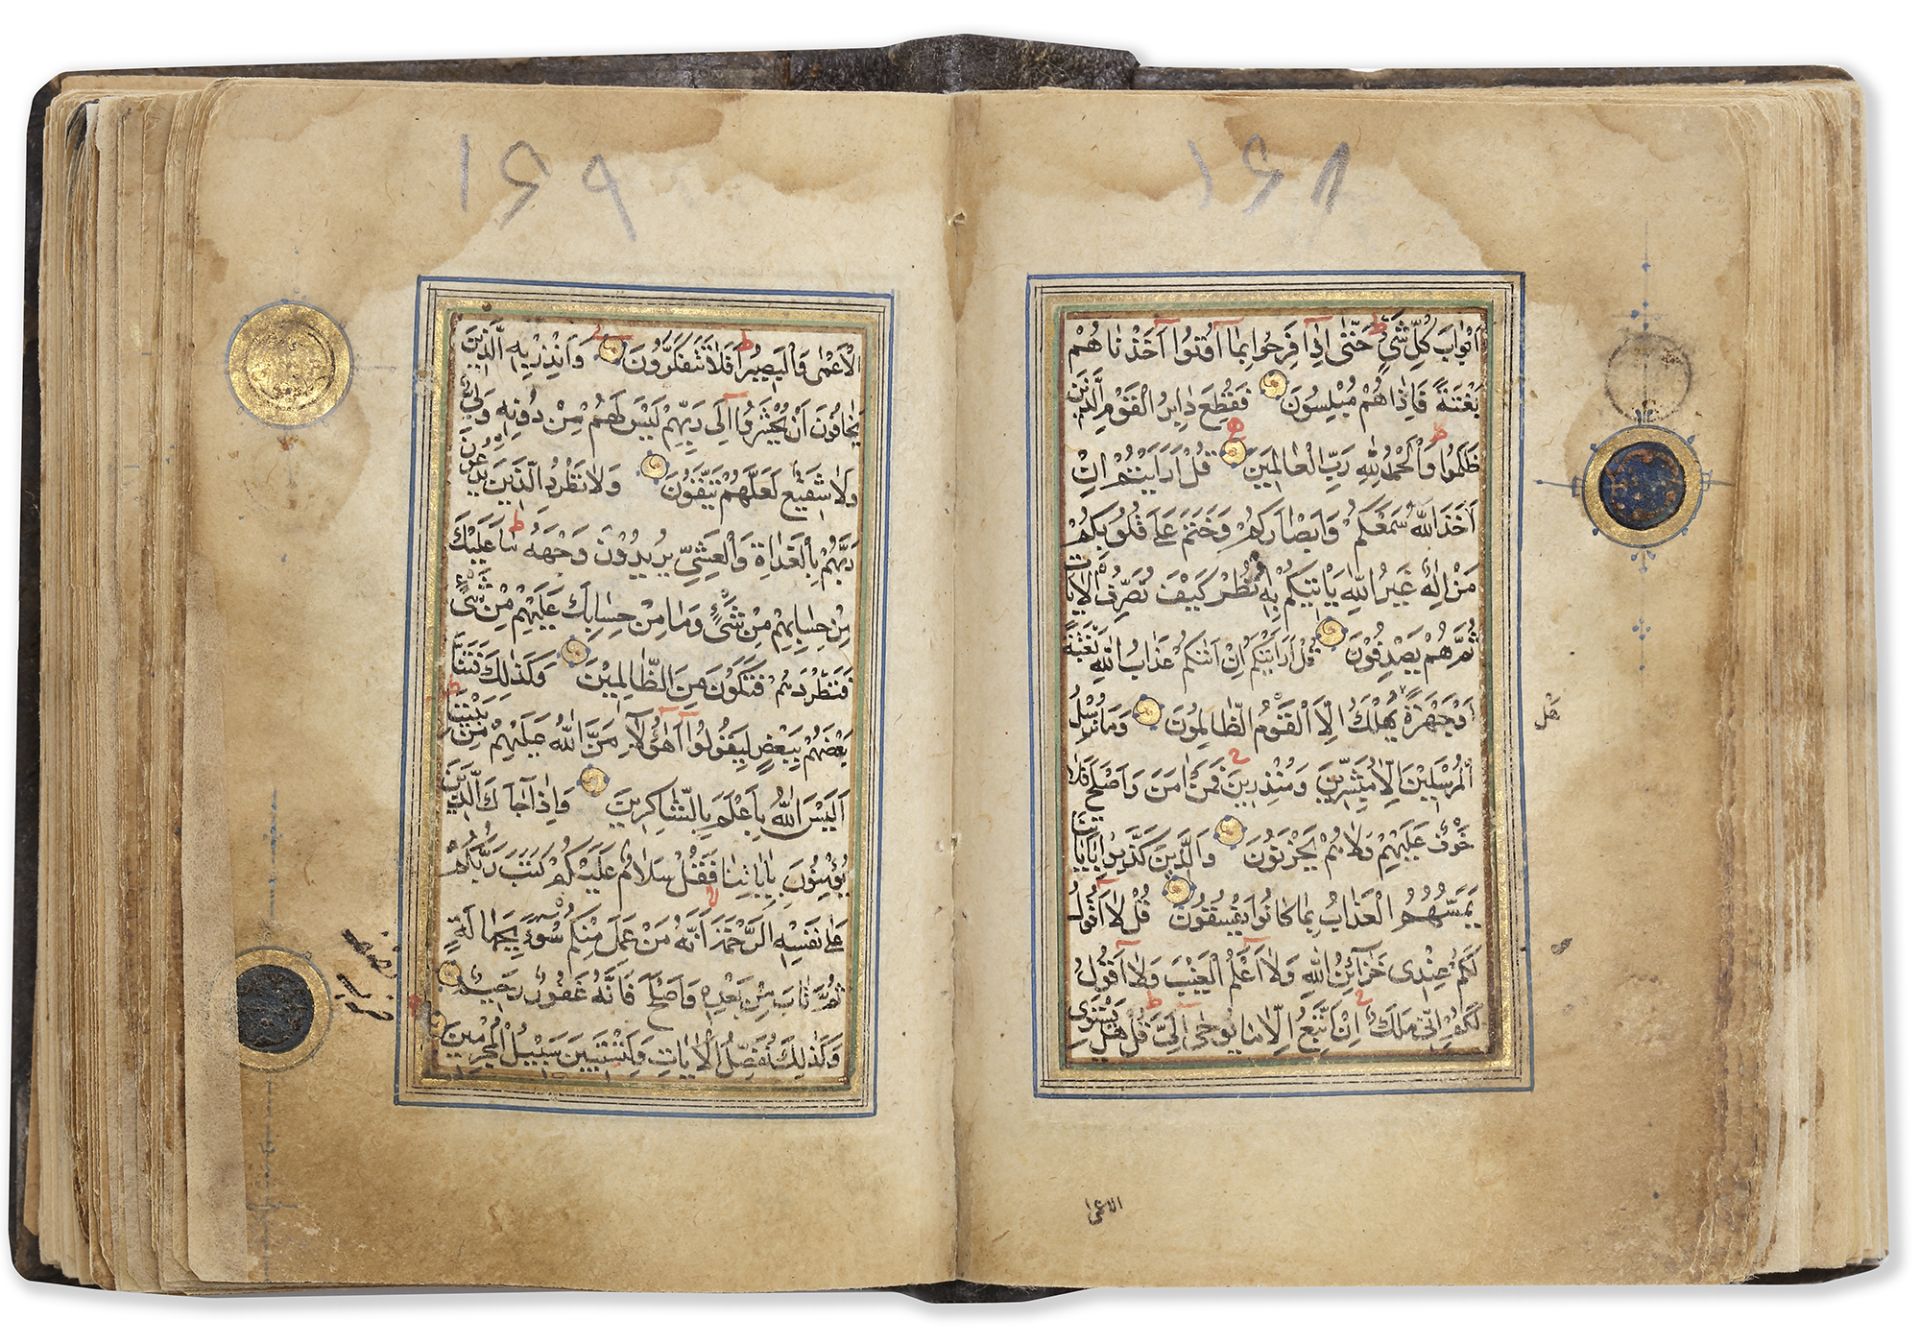 ١٤٨
أَبْوَابَ كُلِّ شَىْءٍ حَتّٰى اِذَا فَرِحُوا بِمَا اُوتُوا اَخَذْنَاهُمْ
بَغْتَةً فَاِذَاهُمْ مُبْلِسُونَ فَقُطِعَ دَابِرُ الْقَوْمِ الَّذِينَ
ظَلَمُوا وَالْحَمْدُ لِلّٰهِ رَبِّ الْعَالَمِينَ قُلْ اَرَاَيْتُمْ اِنْ
اَخَذَ اللّٰهُ سَمْعَكُمْ وَاَبْصَارَكُمْ وَخَتَمَ عَلٰى قُلُوبِكُمْ
مَنْ اِلٰهٌ غَيْرُ اللّٰهِ يَاْتِيكُمْ بِهِ اُنْظُرْ كَيْفَ نُصَرِّفُ الْاٰيَاتِ
ثُمَّ هُمْ يَصْدِفُونَ قُلْ اَرَاَيْتَكُمْ اِنْ اَتٰيكُمْ عَذَابُ اللّٰهِ بَغْتَةً
اَوْ جَهْرَةً هَلْ يُهْلَكُ اِلَّا الْقَوْمُ الظَّالِمُونَ وَمَا نُرْسِلُ
الْمُرْسَلِينَ اِلَّا مُبَشِّرِينَ وَمُنْذِرِينَ فَمَنْ اٰمَنَ وَاَصْلَحَ فَلَا
خَوْفٌ عَلَيْهِمْ وَلَا هُمْ يَحْزَنُونَ وَالَّذِينَ كَذَّبُوا بِاٰيَاتِنَا
يَمَسُّهُمُ الْعَذَابُ بِمَا كَانُوا يَفْسُقُونَ قُلْ لَا اَقُولُ
لَكُمْ عِنْدِى خَزَآئِنُ اللّٰهِ وَلَا اَعْلَمُ الْغَيْبَ وَلَا اَقُولُ
لَكُمْ اِنِّى مَلَكٌ اِنْ اَتَّبِعُ اِلَّا مَا يُوحٰى اِلَىَّ قُلْ هَلْ يَسْتَوِى
هل
الاعمى
١٤٩
الْاَعْمٰى وَالْبَصِيرُ اَفَلَا تَتَفَكَّرُونَ وَاَنْذِرْ بِهِ الَّذِينَ
يَخَافُونَ اَنْ يُحْشَرُوا اِلٰى رَبِّهِمْ لَيْسَ لَهُمْ مِنْ دُونِهِ وَلِىٌّ
وَلَا شَفِيعٌ لَعَلَّهُمْ يَتَّقُونَ وَلَا تَطْرُدِ الَّذِينَ يَدْعُونَ
رَبَّهُمْ بِالْغَدَاةِ وَالْعَشِىِّ يُرِيدُونَ وَجْهَهُ مَا عَلَيْكَ
مِنْ حِسَابِهِمْ مِنْ شَىْءٍ وَمَا مِنْ حِسَابِكَ عَلَيْهِمْ مِنْ شَىْءٍ
فَتَطْرُدَهُمْ فَتَكُونَ مِنَ الظَّالِمِينَ وَكَذٰلِكَ فَتَنَّا
بَعْضَهُمْ بِبَعْضٍ لِيَقُولُوا اَهٰٓؤُلَآءِ مَنَّ اللّٰهُ عَلَيْهِمْ مِنْ بَيْنِنَا
اَلَيْسَ اللّٰهُ بِاَعْلَمَ بِالشَّاكِرِينَ وَاِذَا جَآءَكَ الَّذِينَ
يُؤْمِنُونَ بِاٰيَاتِنَا فَقُلْ سَلَامٌ عَلَيْكُمْ كَتَبَ رَبُّكُمْ
عَلٰى نَفْسِهِ الرَّحْمَةَ اَنَّهُ مَنْ عَمِلَ مِنْكُمْ سُوٓءًا بِجَهَالَةٍ
ثُمَّ تَابَ مِنْ بَعْدِهِ وَاَصْلَحَ فَاَنَّهُ غَفُورٌ رَحِيمٌ
وَكَذٰلِكَ نُفَصِّلُ الْاٰيَاتِ وَلِتَسْتَبِينَ سَبِيلُ الْمُجْرِمِينَ